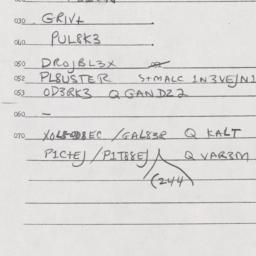 030 GRIVL
060 PUL8K3
050 DROJBL3X
052 PLBUSTER S+MALC 1N3VEJN1
053 OD3RK3 Q GANDZ2
060 –
070 /GAL83R Q KALT
P1C+EJ /P1T88EJ Q VAR3M
(244